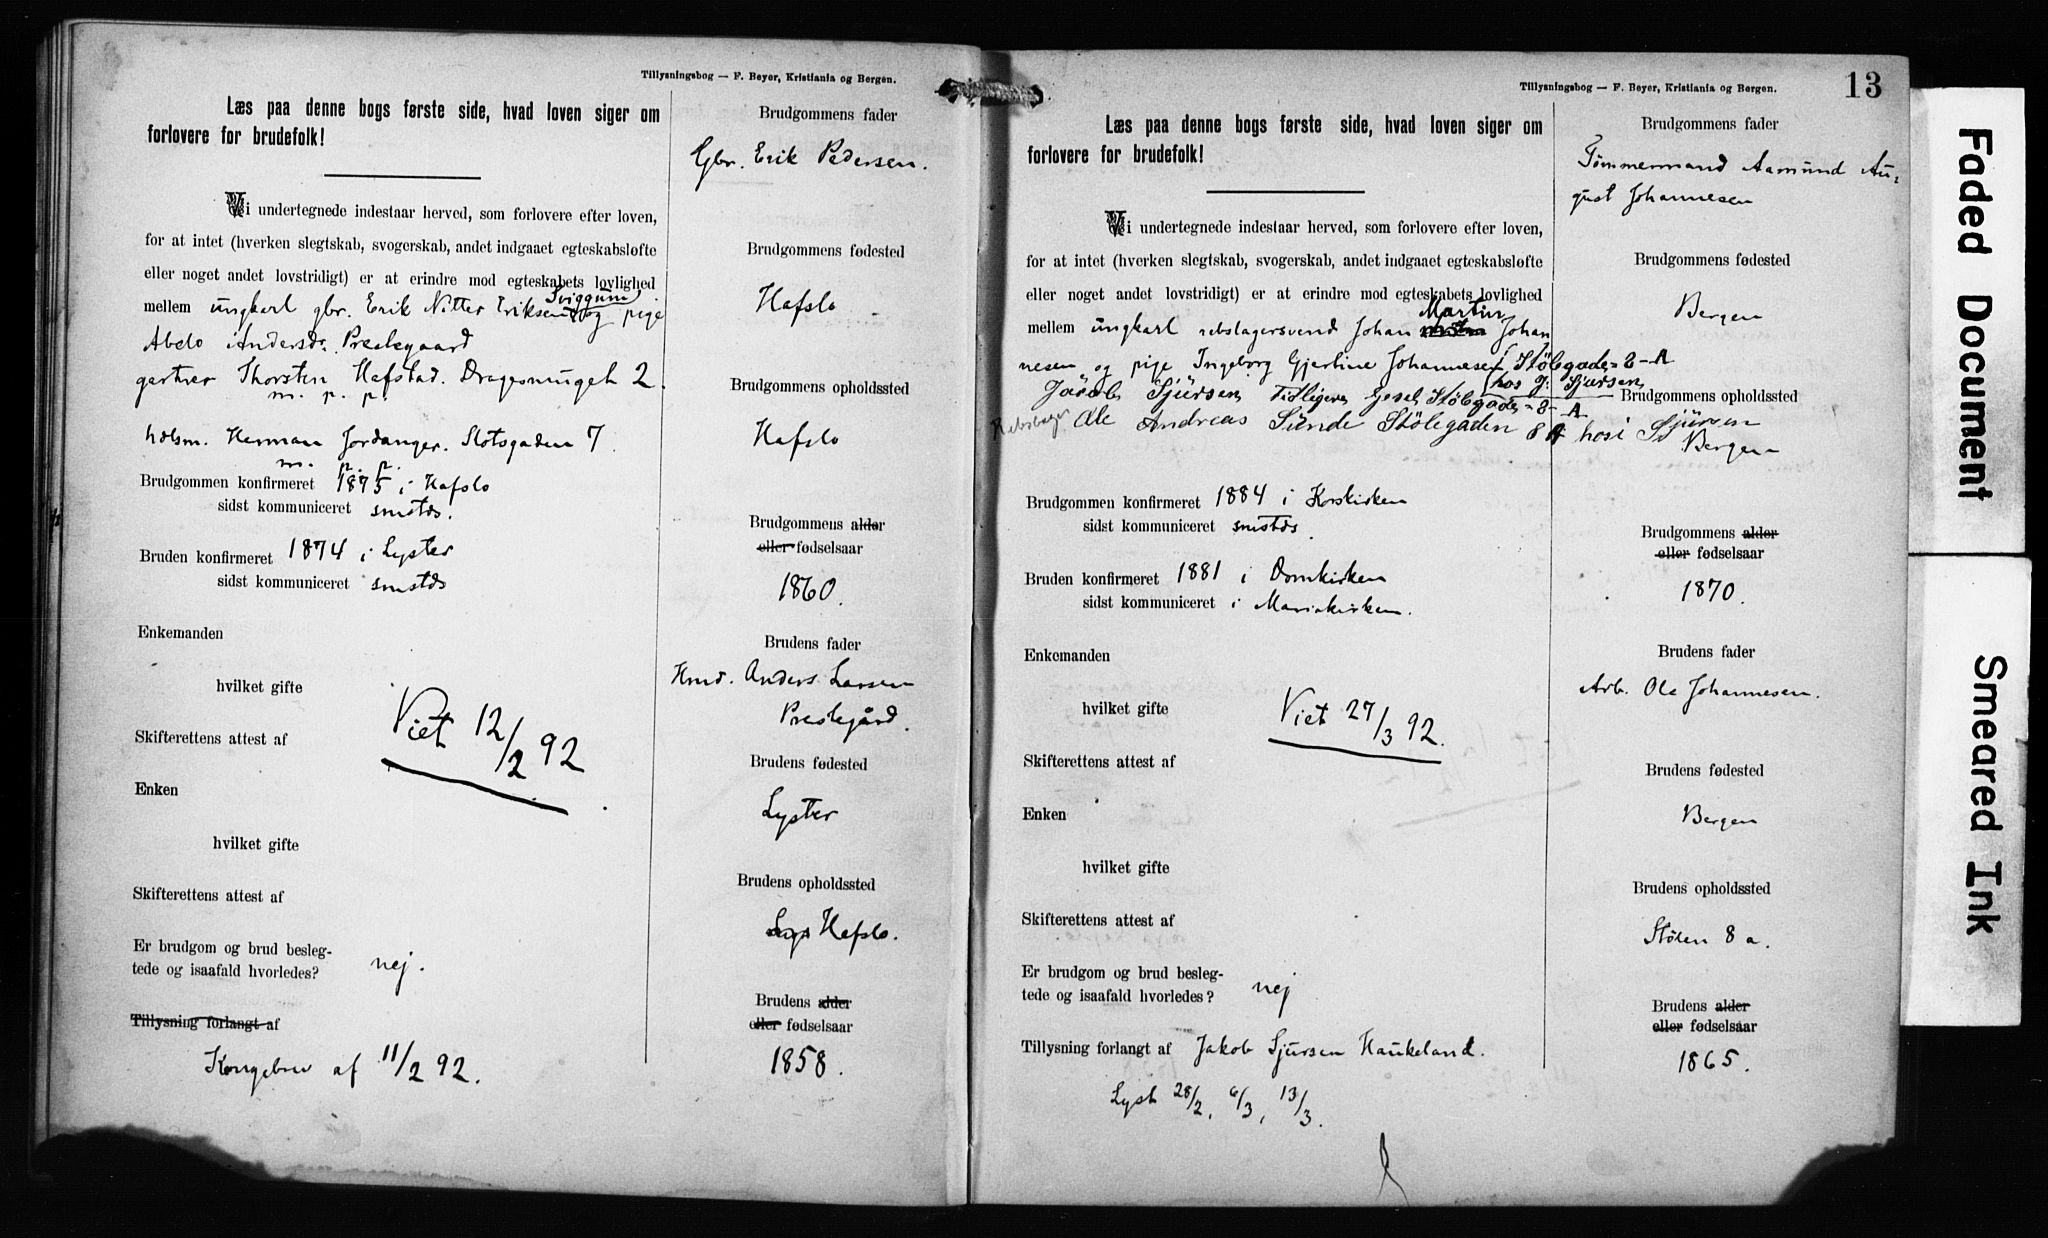 Tillysningsbog — F. Beyer, Kristiania og Bergen.
Læs paa denne bogs første side, hvad loven siger om
forlovere for brudefolk!
Vi undertegnede indestaar herved, som forlovere efter loven,
for at intet (hverken slegtskab, svogerskab, andet indgaaet egteskabsløfte
eller noget andet lovstridigt) er at erindre mod egteskabets lovlighed
Sviggum
mellem ungkarl gbr. Erik Nitter Eriksen og pige
Abelo Andersdr. Prestegaard
gartner Thorsten Hafstad. Dragesmuget 2.
m. p. p.
hdlsm. Herman Jordanger. Slotsgaden 7
m. p. p.
Brudgommen konfirmeret 1875 i Hafslo
sidst kommuniceret smstds.
Bruden konfirmeret 1874 i Lyster
sidst kommuniceret smstds
Enkemanden
hvilket gifte
Viet 12/2 92
Skifterettens attest af
Enken
hvilket gifte
Skifterettens attest af
Er brudgom og brud besleg-
tede og isaafald hvorledes? nej.
Tillysning forlangt af
Kongebrev af 11/2 92.
Brudgommens fader
Gbr. Erik Pedersen.
Brudgommens fødested
Hafslo
Brudgommens opholdssted
Hafslo
Brudgommens alder
eller fødselsaar
1860.
Brudens fader
Hmd. Anders Larsen
Prestegård.
Brudens fødested
Lyster
Brudens opholdssted
Hafslo.
Brudens alder
eller fødselsaar
1858.
Tillysningsbog — F. Beyer, Kristiania og Bergen.
13
Læs paa denne bogs første side, hvad loven siger om
forlovere for brudefolk!
Vi undertegnede indestaar herved, som forlovere efter loven,
for at intet (hverken slegtskab, svogerskab, andet indgaaet egteskabsløfte
eller noget andet lovstridigt) er at erindre mod egteskabets lovlighed
Martin
mellem ungkarl rebslagersvend Johan Johan
nesen og pige Ingeborg Gjertine Johannesen, Stølegaden 8-A
hos J. Sjursen
Jacob Sjursen Stølegaden 8-A
Ole Andreas Sunde Stølegaden 8 A hos Sjursen
Brudgommen konfirmeret 1884 i Korskirken
sidst kommuniceret smstds.
Bruden konfirmeret 1881 i Domkirken
sidst kommuniceret i Mariakirken.
Enkemanden
hvilket gifte
Viet 27/3 92.
Skifterettens attest af
Enken
hvilket gifte
Skifterettens attest af
Er brudgom og brud besleg-
tede og isaafald hvorledes? nej
Tillysning forlangt af Jakob Sjursen Haukeland.
Lyst 28/2, 6/3, 13/3.
Brudgommens fader
Tømmermand Aamund Au-
gust Johannesen
Brudgommens fødested
Bergen
Brudgommens opholdssted
Bergen
Brudgommens alder
eller fødselsaar
1870.
Brudens fader
Arb. Ole Johannesen.
Brudens fødested
Bergen
Brudens opholdssted
Stølen 8 a.
Brudens alder
eller fødselsaar
1865.
Faded Document
Smeared Ink